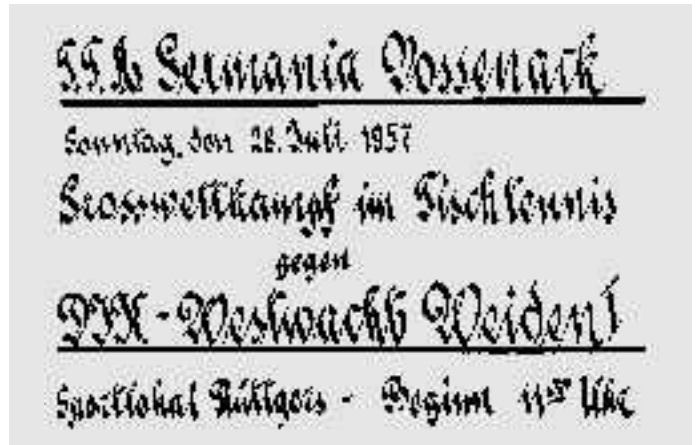 T.T.C. Germania Vossenack
Sonntag, den 28. Juli 1957
Grosswettkampf im Tischtennis
gegen
DJK - Westwacht Weiden
Sportlokal Rüttgers - Beginn Uhr